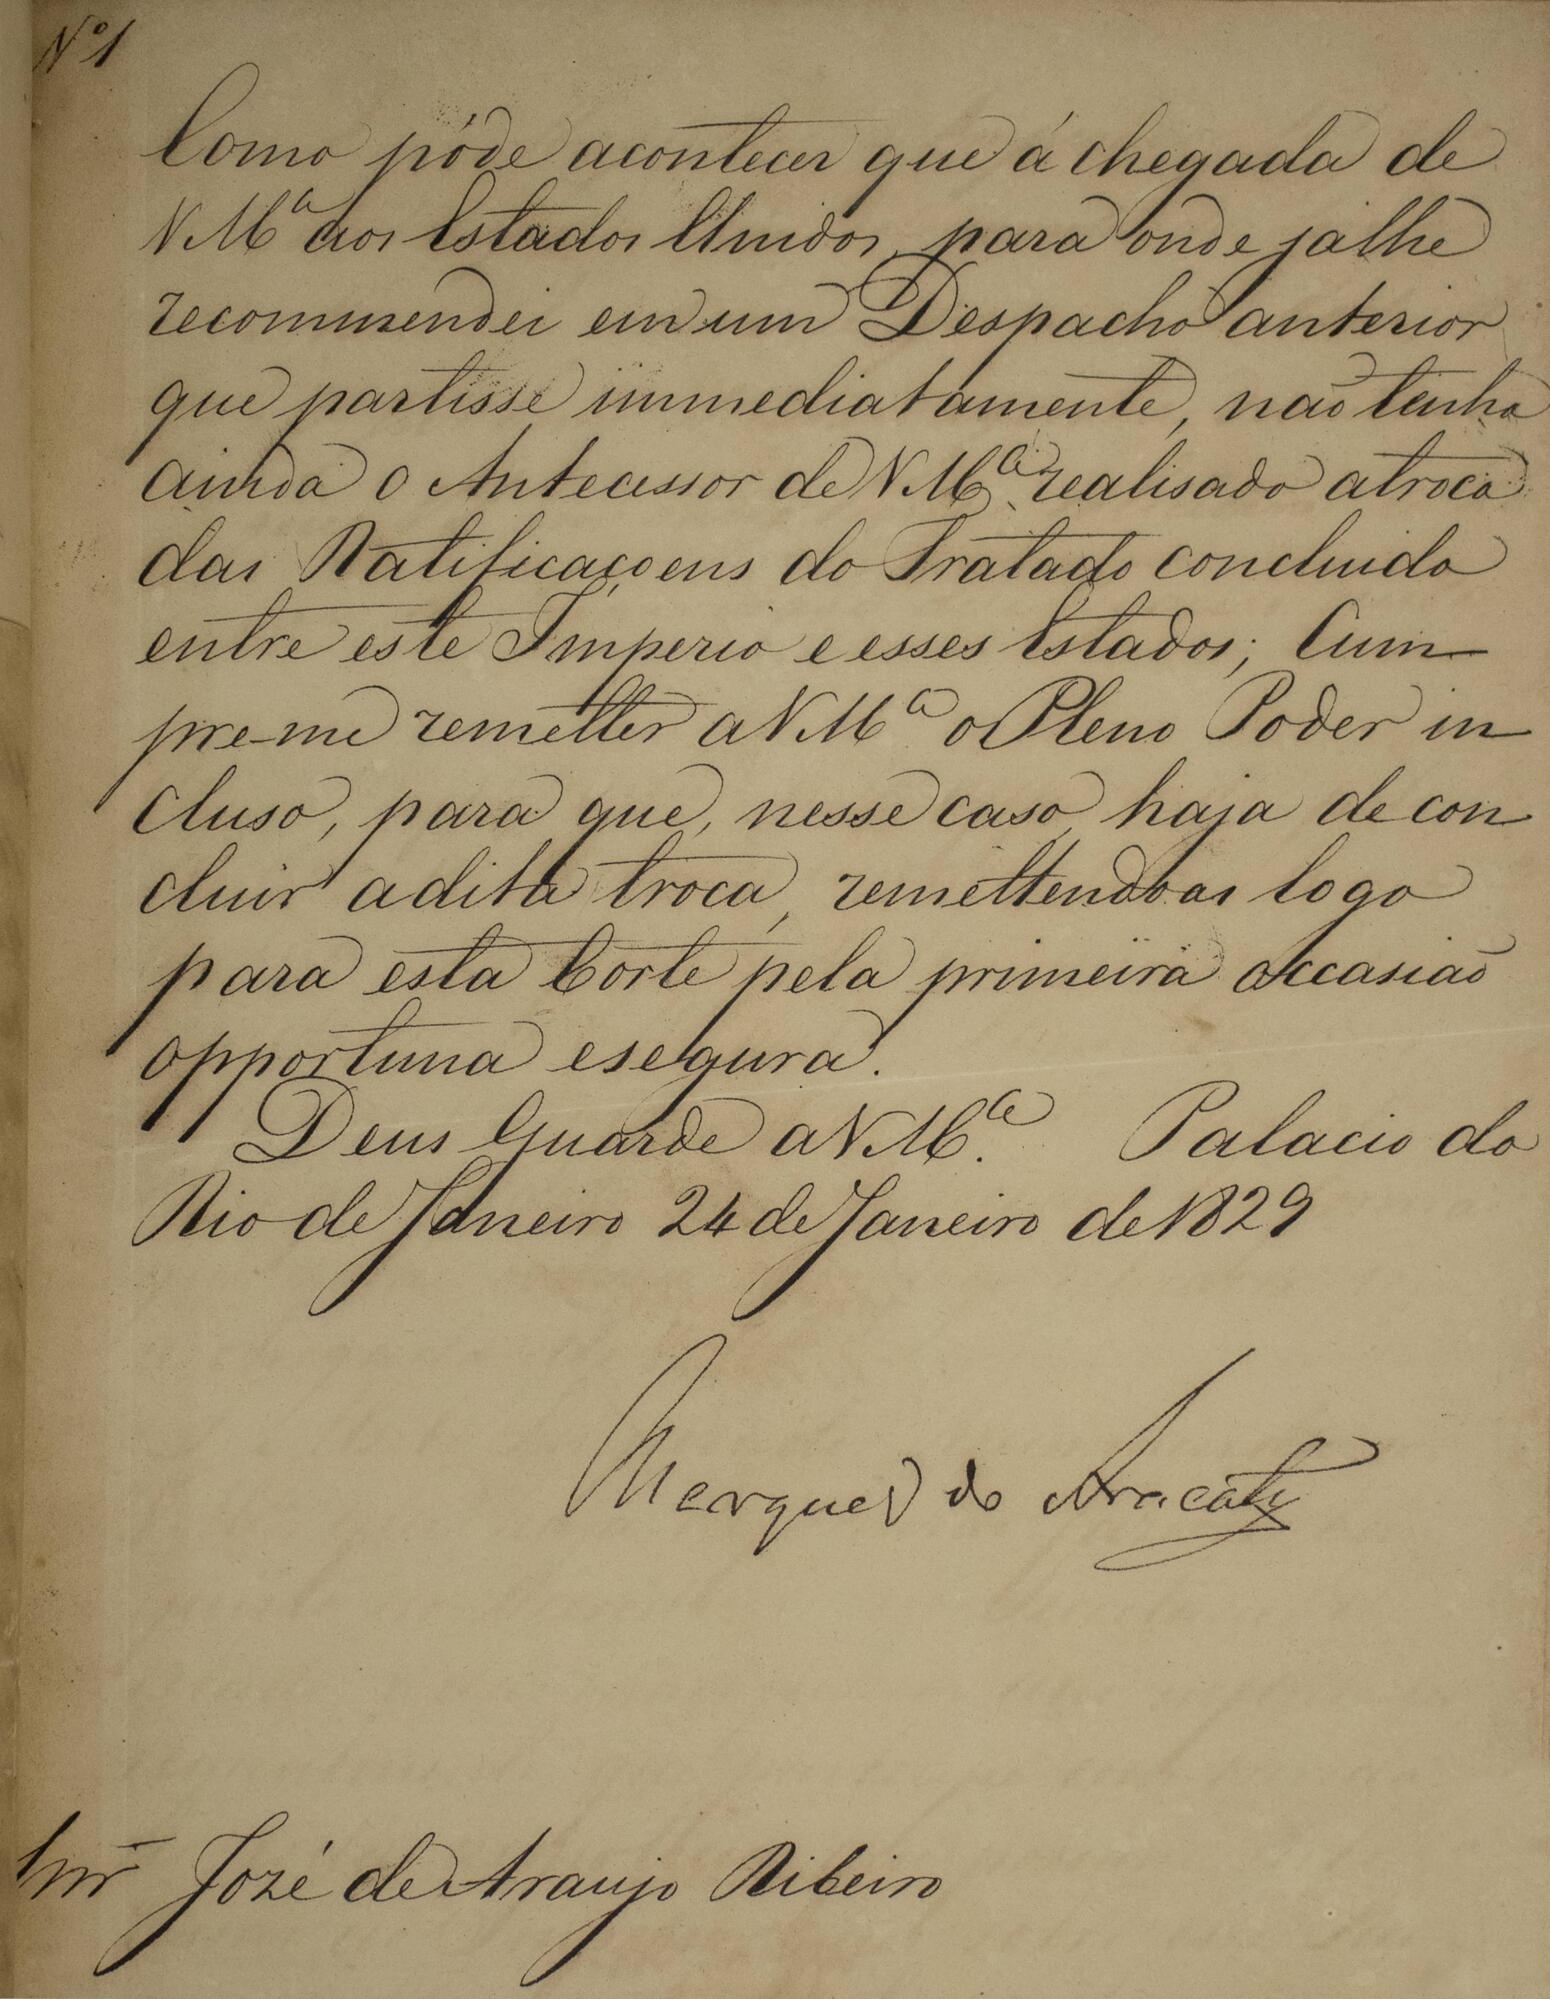 Nº 1
Como póde acontecer que á chegada de
V Mᶜᵉ aos Estados Unidos, para onde ja lhe
recommendei em um Despacho anterior
que partisse immediatamente, não tenha
ainda o Antecessor de V Mᶜᵉ realisado a troca
das Ratificaçoens do Tratado concluido
entre este Imperio e esses Estados; Cum-
pre-me remetter a V Mᶜᵉ o Pleno Poder in-
cluso, para que, nesse caso, haja de con-
cluir a dita troca, remettendo as logo
para esta Corte pela primeira occasião
opportuna e segura.
Deus Guarde a V Mᶜᵉ. Palacio do
Rio de Janeiro 24 de Janeiro de 1829
Marquez do Aracaty
Snr̄ José de Araujo Ribeiro